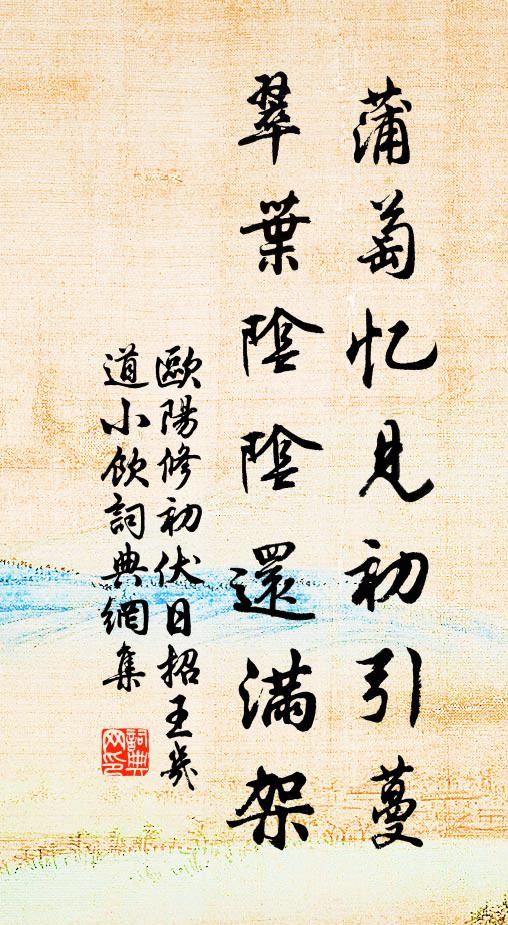 蒲萄忆見初引蔓
翠葉陰陰還滿架
歐陽修初伏日招王幾
道小飲詞典網集
詞典网印